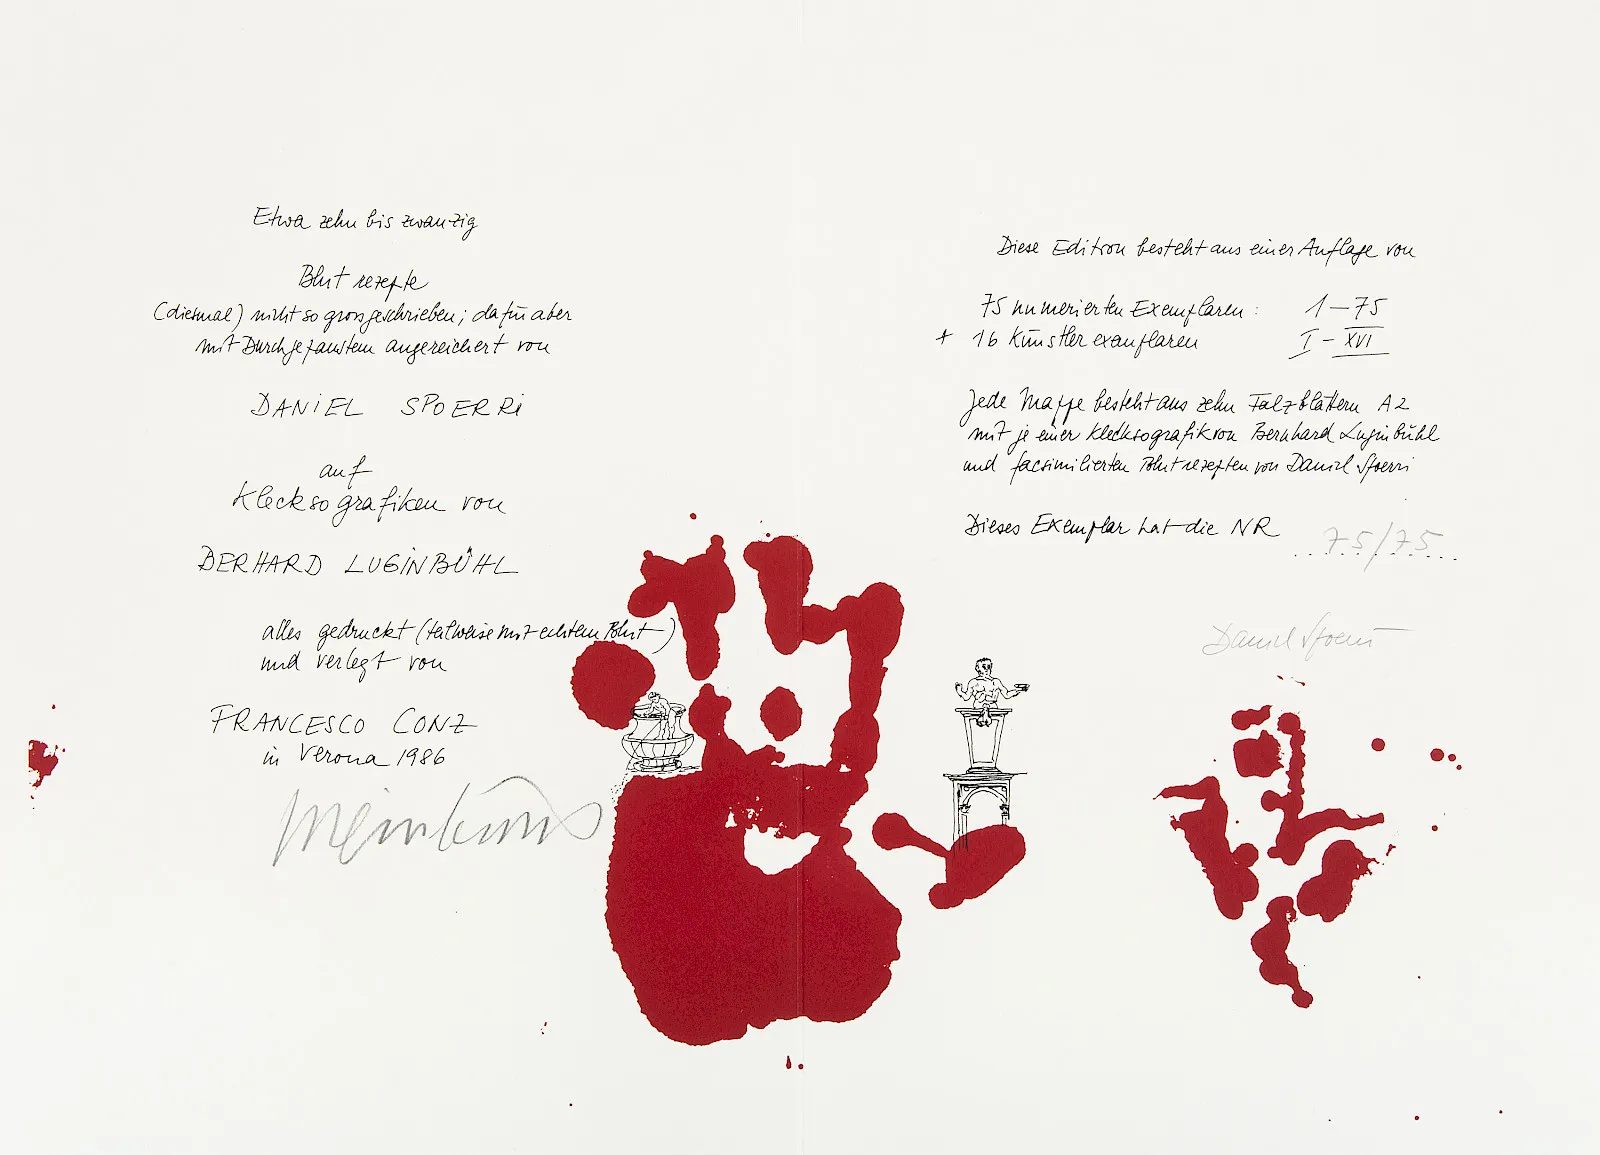 Etwa zehn bis zwanzig
Blut rezepte
(diesmal) nicht so grossgeschrieben; dafür aber
mit Durchgepaustem angereichert von
DANIEL SPOERRI
auf
Klecksografiken von
BERHARD LUGINBÜHL
alles gedruckt (teilweise mit echtem Blut)
und verlegt von
FRANCESCO CONZ
in Verona 1986
Diese Edition besteht aus einer Auflage von
75 numerierten Exemplaren: 1–75
+ 16 Künstlerexemplaren I–XVI
Jede Mappe besteht aus zehn Falzblättern A2
mit je einer Klecksografik von Bernhard Luginbühl
und facsimilierten Blutrezepten von Daniel Spoerri
Dieses Exemplar hat die NR ..75/75...
Daniel Spoerri